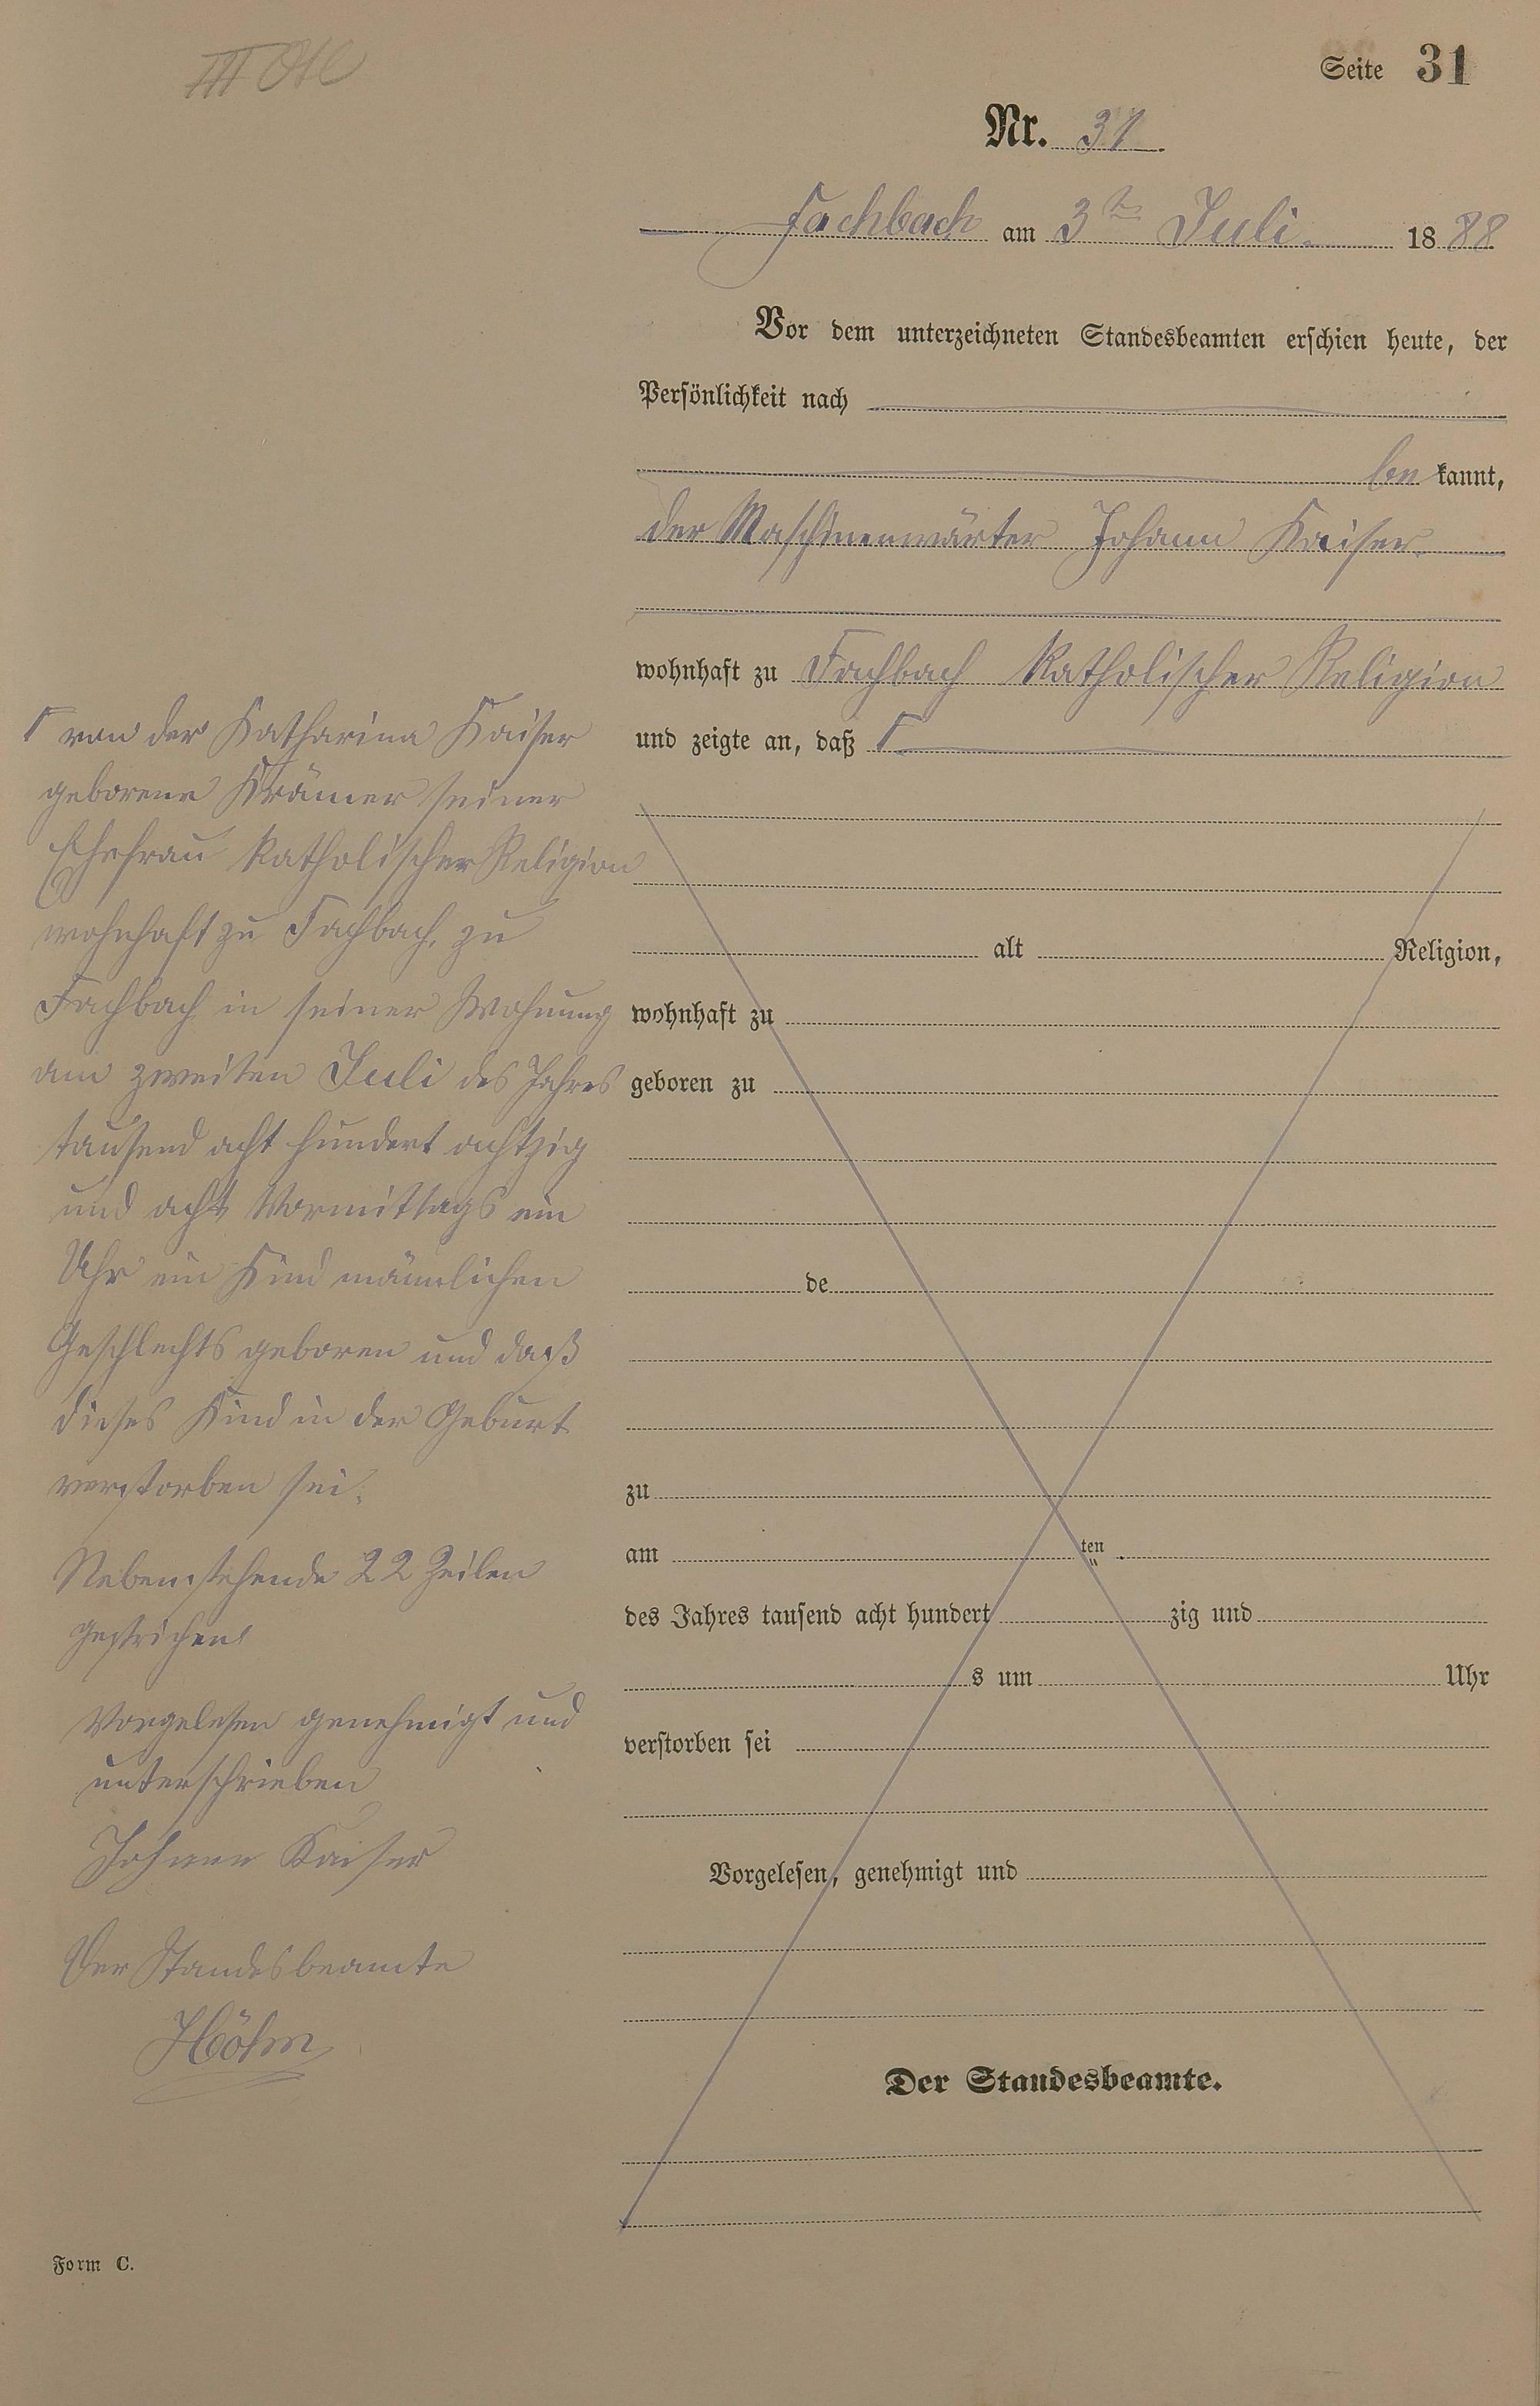 Seite 31
Nr. 31.
Fachbach am 3ten Juli. 1888
Vor dem unterzeichneten Standesbeamten erschien heute, der
Persönlichkeit nach
be kannt,
der Maschinenwärter Johann Kaiser.
wohnhaft zu Fachbach katholischer Religion
und zeigte an, daß Γ
alt Religion,
wohnhaft zu
geboren zu
de
zu
am ten
des Jahres tausend acht hundert zig und
s um Uhr
verstorben sei
Vorgelesen, genehmigt und
Der Standesbeamte.
Γ von der Katharina Kaiser
geborene Krämer seiner
Ehefrau katholischer Religion
wohnhaft zu Fachbach, zu
Fachbach in seiner Wohnung
am zweiten Juli des Jahres
tausend acht hundert achtzig
und acht Vormittags ein
Uhr ein Kind männlichen
Geschlechts geboren und daß
dieses Kind in der Geburt
verstorben sei.
Nebenstehende 22 Zeilen
gestrichen
Vorgelesen genehmigt und
unterschrieben
Johann Kaiser
Der Standesbeamte
Form C.